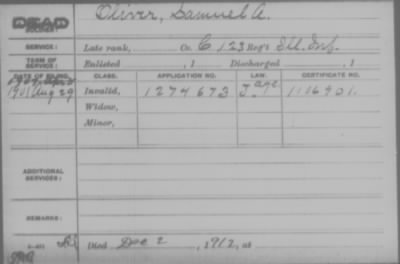 Oliver, Samuel A.
DEAD
SOLDIER:
SERVICE: Late rank, Co. C, 123 Reg't Ill. Inf.
TERM OF SERVICE: Enlisted , 1 Discharged , 1
DATE OF FILING. CLASS. APPLICATION NO. LAW. CERTIFICATE NO.
1901 Aug 29 Invalid, 1274673 1106901.
Widow,
Minor,
ADDITIONAL SERVICES:
REMARKS:
Died Dec 2, 1912, at